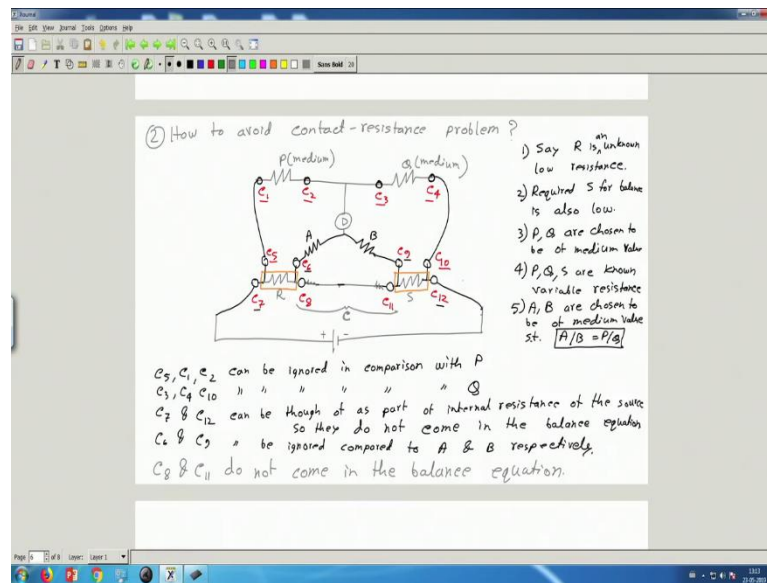 Journal
File Edit View Journal Tools Options Help
Sans Bold 20
② How to avoid contact-resistance problem?
P(medium)
Q(medium)
C1
C2
C3
C4
D
A
B
C5
C6
C9
C10
C7
R
C8
C11
S
C12
C
+ -
1) Say R is an unknown
low resistance.
2) Required S for balance
is also low.
3) P, Q are chosen to
be of medium value
4) P, Q, S are known
variable resistance
5) A, B are chosen to
be of medium value
s.t. A/B = P/Q
C5, C1, C2 can be ignored in comparison with P
C3, C4 C10 " " " " " Q
C7 & C12 can be though of as part of internal resistance of the source
so they do not come in the balance equation
C6 & C9 " be ignored compared to A & B respectively.
C8 & C11 do not come in the balance equation.
Page 6 of 8 Layer: Layer 1
13:13
23-05-2017